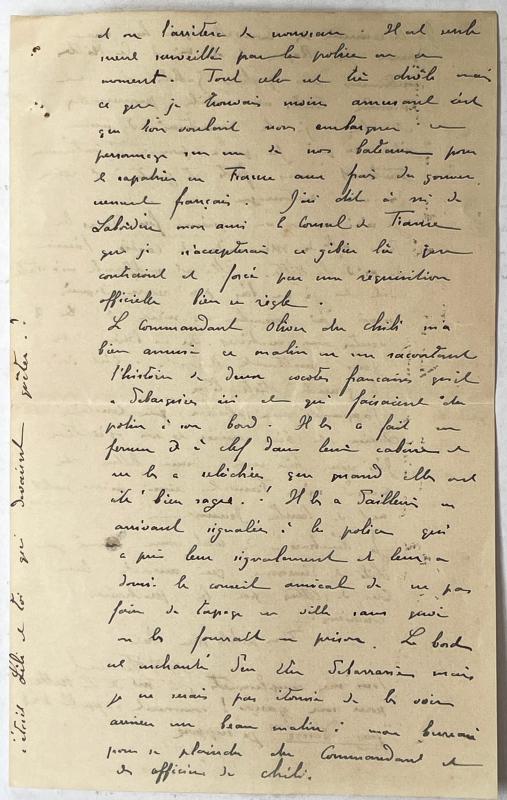 et on l'arrêtera de nouveau. Il est seule
ment surveillé par la police en ce
moment. Tout cela est très drôle mais
ce que je trouvais moins amusant c'est
que l'on voulait nous embarquer ce
personnage sur un de nos bateaux pour
le rapatrier en France aux frais du gouver
nement français. J'ai dit à Mr de
Labordère mon ami le Consul de France
que je n'accepterais ce gibier là que
contraint et forcé par une réquisition
officielle bien en règle.
Le Commandant Olivier du Chili m'a
bien amusé ce matin en me racontant
l'histoire de deux cocotes françaises qu'il
a débarquées ici et qui faisaient du
potin à son bord. Il les a fait en
fermer à clef dans leur cabine et
ne les a relâchées que quand elles ont
été bien sages. Il les a d'ailleurs en
arrivant signalées à la police qui
a pris leur signalement et leur a
donné le conseil amical de ne pas
faire de tapage en ville sans quoi
on les fourrait en prison. Le bord
est enchanté d'en être débarrassé mais
je ne serais pas étonné de les voir
arriver un beau matin à mon bureau
pour se plaindre du Commandant et
des officiers du Chili.
c'était Lili et toi qui devaient goûter.?